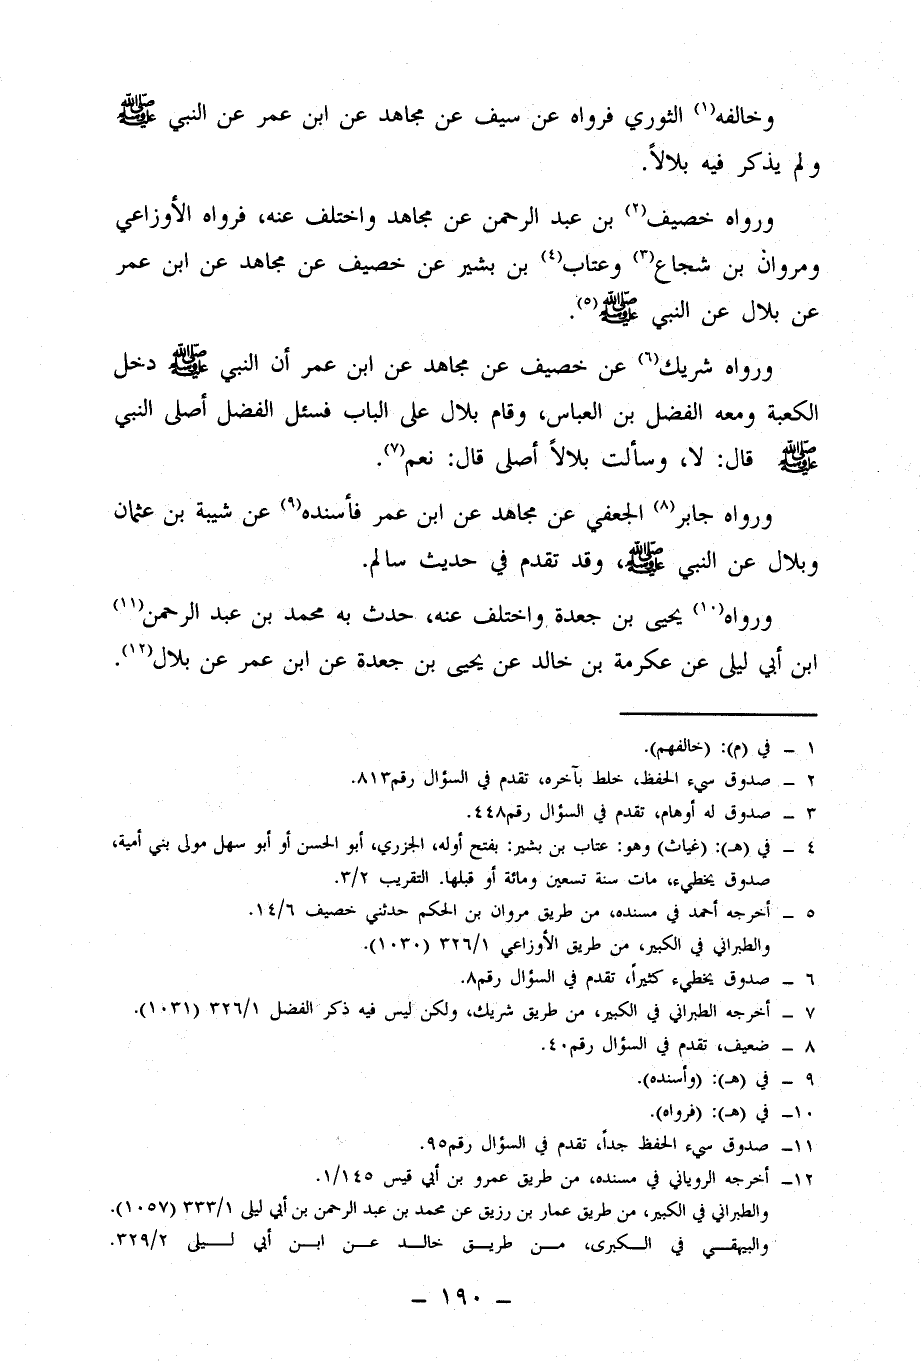 وخالفه(١) الثوري فرواه عن سيف عن مجاهد عن ابن عمر عن النبي ﷺ
ولم يذكر فيه بلالاً.
ورواه خصيف(٢) بن عبد الرحمن عن مجاهد واختلف عنه، فرواه الأوزاعي
ومروان بن شجاع(٣) وعتاب(٤) بن بشير عن خصيف عن مجاهد عن ابن عمر
عن بلال عن النبي ﷺ(٥).
ورواه شريك(٦) عن خصيف عن مجاهد عن ابن عمر أن النبي ﷺ دخل
الكعبة ومعه الفضل بن العباس، وقام بلال على الباب فسئل الفضل أصلى النبي
ﷺ قال: لا، وسألت بلالاً أصلى قال: نعم(٧).
ورواه جابر(٨) الجعفي عن مجاهد عن ابن عمر فأسنده(٩) عن شيبة بن عثمان
وبلال عن النبي ﷺ، وقد تقدم في حديث سالم.
ورواه(١٠) يحيى بن جعدة واختلف عنه، حدث به محمد بن عبد الرحمن(١١)
ابن أبي ليلى عن عكرمة بن خالد عن يحيى بن جعدة عن ابن عمر عن بلال(١٢).
١ – في (م): (خالفهم).
٢ – صدوق سيء الحفظ، خلط بآخره، تقدم في السؤال رقم٨١٣.
٣ – صدوق له أوهام، تقدم في السؤال رقم٤٤٨.
٤ – في (هـ): (غياث) وهو: عتاب بن بشير: بفتح أوله، الجزري، أبو الحسن أو أبو سهل مولى بني أمية،
صدوق يخطيء، مات سنة تسعين ومائة أو قبلها. التقريب ٣/٢.
٥ – أخرجه أحمد في مسنده، من طريق مروان بن الحكم حدثني خصيف ١٤/٦.
والطبراني في الكبير، من طريق الأوزاعي ٣٢٦/١ (١٠٣٠).
٦ – صدوق يخطيء كثيراً، تقدم في السؤال رقم٨.
٧ – أخرجه الطبراني في الكبير، من طريق شريك، ولكن ليس فيه ذكر الفضل ٣٢٦/١ (١٠٣١).
٨ – ضعيف، تقدم في السؤال رقم٤٠.
٩ – في (هـ): (وأسنده).
١٠– في (هـ): (فرواه).
١١– صدوق سيء الحفظ جداً، تقدم في السؤال رقم٩٥.
١٢– أخرجه الروياني في مسنده، من طريق عمرو بن أبي قيس ١/١٤٥.
والطبراني في الكبير، من طريق عمار بن رزيق عن محمد بن عبد الرحمن بن أبي ليلى ٣٣٣/١ (١٠٥٧).
والبيهقــي في الكـبرى، مــن طريــق خالــد عــن ابــن أبي لــيلى ٣٢٩/٢.
– ١٩٠ –